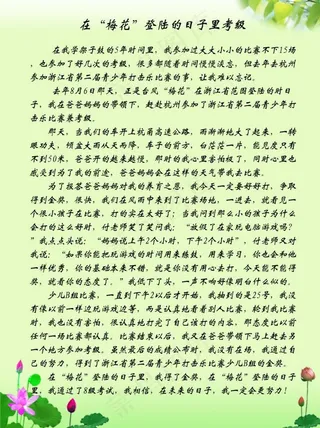 在“梅花”登陆的日子里考级
在我学架子鼓的5年时间里，我参加过大大小小的比赛不下15场，
也参加了好几次的考级，很多都随着时间慢慢淡忘，但去年去杭州
参加浙江省第二届青少年打击乐比赛的事，让我难以忘记。
去年8月6那天，正是台风“梅花”在浙江省范围登陆的时日
子，我在爸爸妈妈的带领下，赶赴杭州参加了浙江省第二届青少年打
击乐比赛考级。
那天，当我们的车开上杭甬高速公路，雨渐渐地大了起来，一转
眼功夫，倾盆大雨从天而降，车子的前方，白茫茫一片，能见度只有
不到50米，爸爸开的越来越慢，那时的我心里害怕极了，同时心里也
感受到为了我的前途，爸爸妈妈会在这样的天气带我去比赛。
为了报答爸爸妈妈对我的养育之恩，我今天一定要好好打，争取
得到金奖，很快，我们在风雨中来到了比赛场地，一进去，就看见一
个很小孩子在比赛，打的实在太好了；当我问到那么小的孩子为什么
会打的这么好时，付老师笑了笑问我：“放假了在家玩电脑游戏吗？
”我点点头说：“妈妈说上午2个小时，下午2个小时”，付老师又对
我说：“如果你能把玩游戏的时间用来练鼓，用来学习，你也会和他
一样优秀，你的基础本来不错，就是你没有用心去打，今天能不能得
奖，就看你的态度了。”我低下了头，一声不吭好像明白什么似的。
少儿B组比赛，一直到下午2以后才开始，我抽到的是25号，我没
有像以前一样边玩游戏边等，而是认真地看看别人比赛，轮到我比赛
时，我也没有害怕，很认真地打完了自己该打的内容，那态度比以前
任何一场比赛都认真。比赛结束以后，我又在爸爸带领下马上赶去另
一个地方参加考级。虽然最后的成绩公布时，我没有在场，我通过自
己的努力，得到了浙江省第二届青少年打击乐比赛少儿B组的金奖。
在“梅花”登陆的日子里，我得了金奖，在“梅花”登陆的日子
里，我通过了8级考试，我相信，在未来的日子，我一定会更努力！